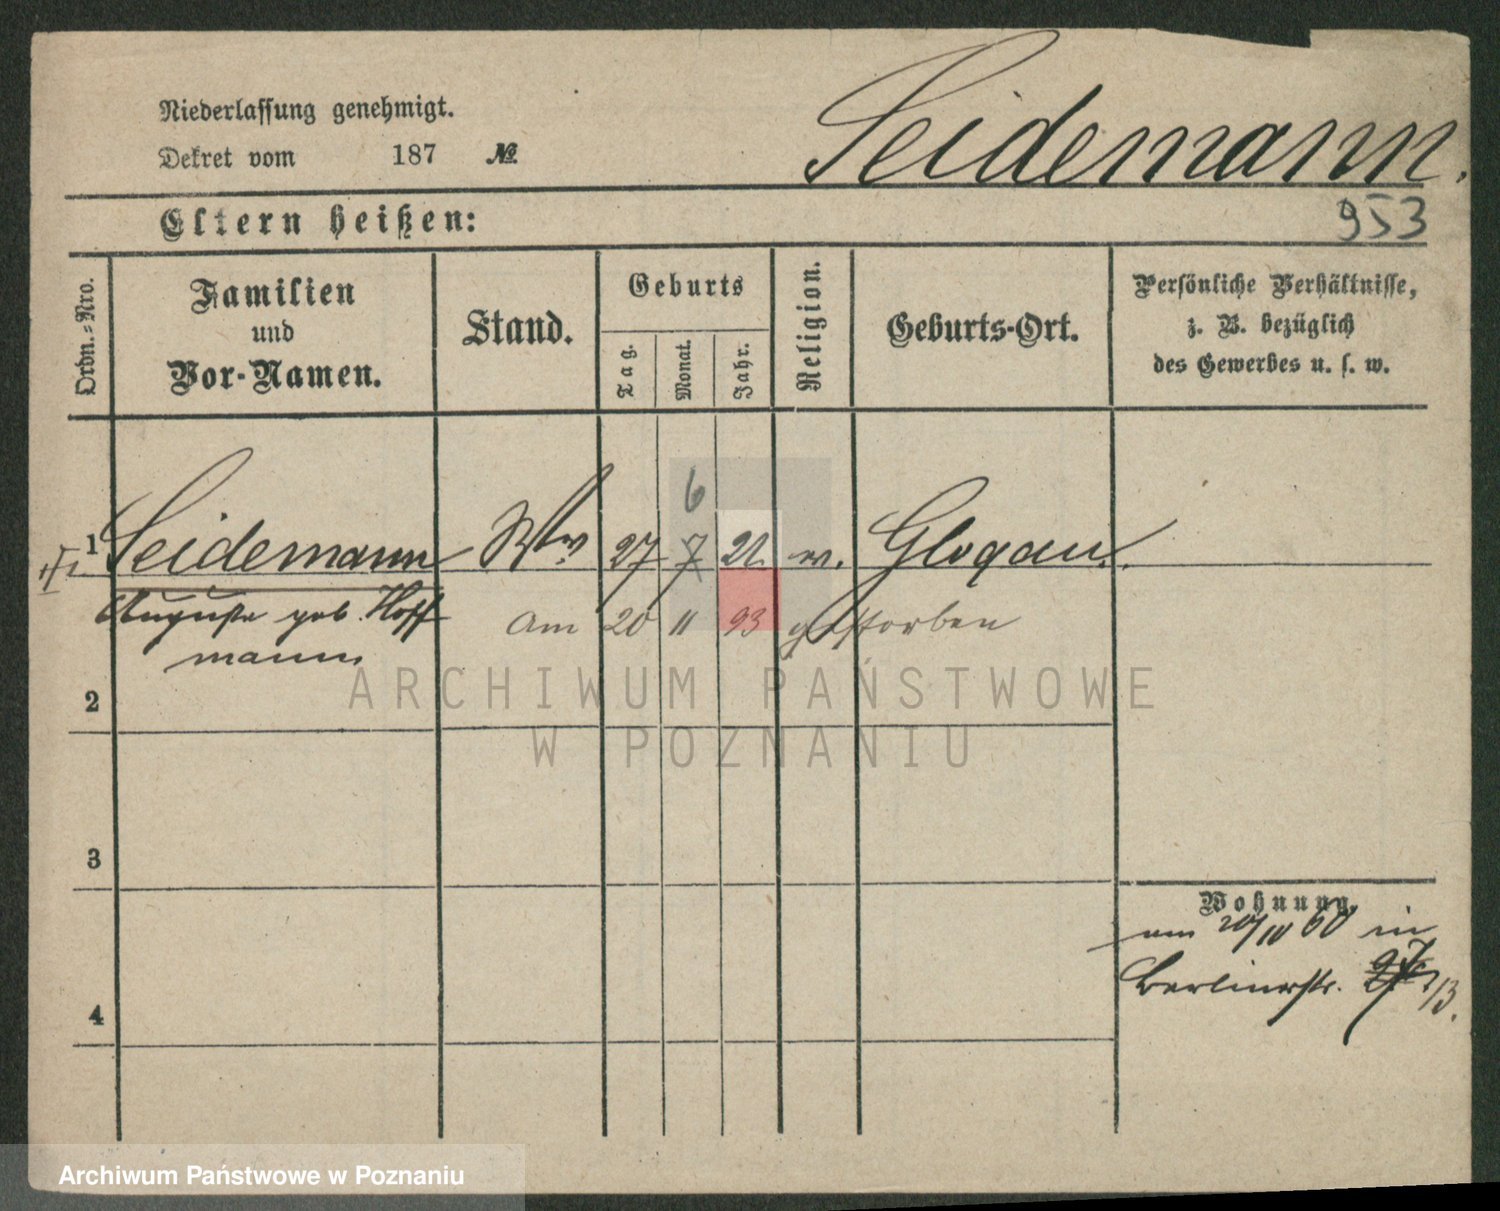 Niederlassung genehmigt.
Dekret vom 187 №
Seidemann.
953
Eltern heißen:
Ordn.-Nro.
Familien
und
Vor-Namen.
Stand.
Geburts
Tag.
Monat.
Jahr.
Religion.
Geburts-Ort.
Persönliche Verhältnisse,
z. B. bezüglich
des Gewerbes u. s. w.
6
1 Seidemann Wwe 27 7 22. ev. Glogau.
Auguste geb. Hoff
mann
am 20 11 93 gestorben
2
3
4
Wohnung.
am in
Berlinerstr.
ARCHIWUM PAŃSTWOWE
W POZNANIU
Archiwum Państwowe w Poznaniu